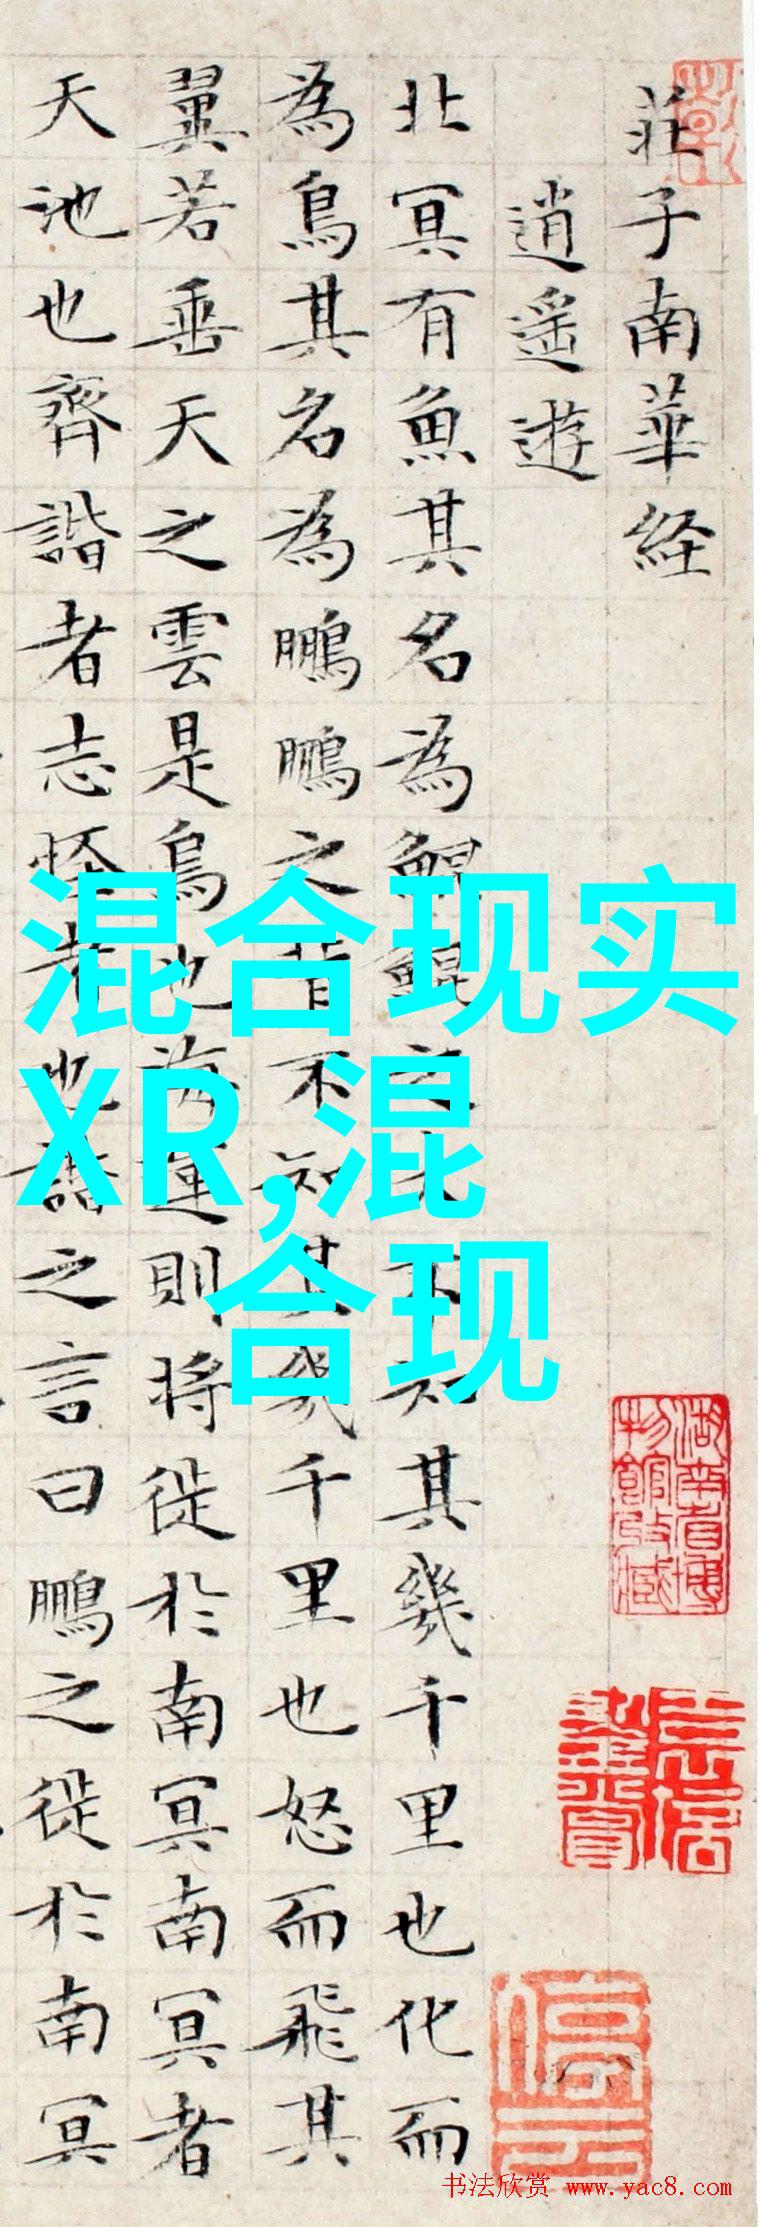 莊子南華経
逍遙遊
北冥有魚其名為鯤鯤之大不知其幾千里也化而
為鳥其名為鵬鵬之背不知其幾千里也怒而飛其
翼若垂天之雲是鳥也海運則將徙於南冥南冥者
天池也齊諧者志怪者也諧之言曰鵬之徙於南冥
混合现实
XR,混
合现
湖南省博
物館收藏
书法欣赏 www.yac8.com